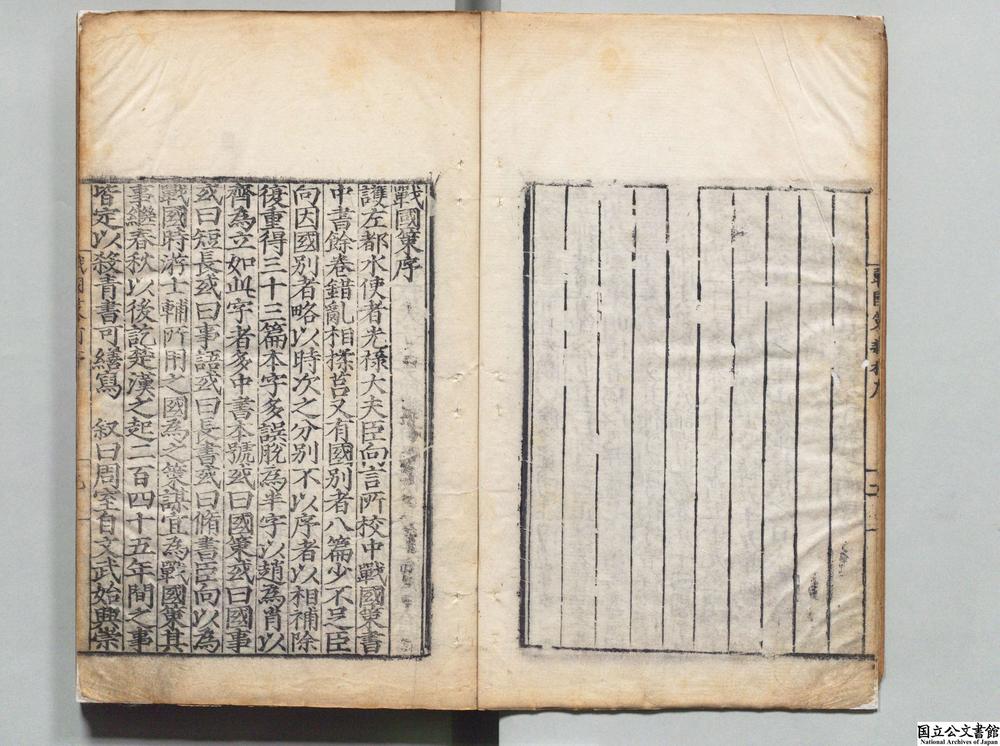 戰國策序
護左都水使者光祿大夫臣向言所校中戰國策書
中書餘卷錯亂相揉莒又有國別者八篇少不足臣
向因國別者略以時次之分別不以序者以相補除
復重得三十三篇本字多誤脫為半字以趙為肖以
齊為立如此字者多中書本號或曰國策或曰國事
或曰短長或曰事語或曰長書或曰脩書臣向以為
戰國時游士輔所用之國為之策謀宜為戰國策其
事繼春秋以後訖楚漢之起二百四十五年間之事
皆定以殺青書可繕寫　叙曰周室自文武始興崇
国立公文書館
National Archives of Japan